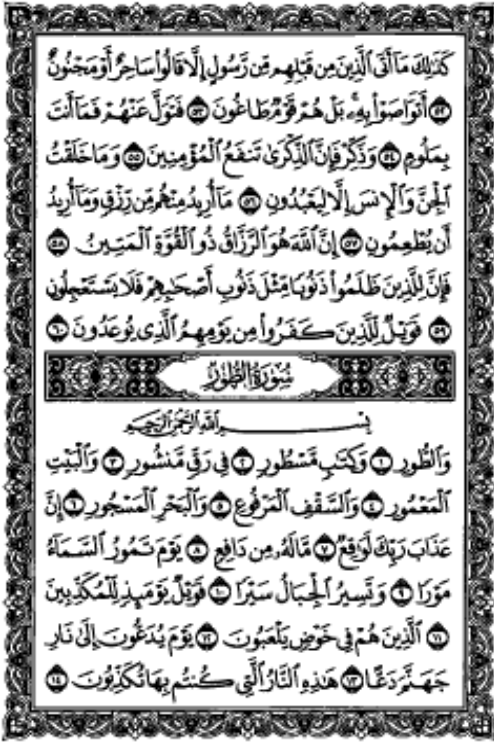 كَذَٰلِكَ مَآ أَتَى ٱلَّذِينَ مِن قَبْلِهِم مِّن رَّسُولٍ إِلَّا قَالُوا۟ سَاحِرٌ أَوْ مَجْنُونٌ
۝٥٢ أَتَوَاصَوْا۟ بِهِۦ ۚ بَلْ هُمْ قَوْمٌ طَاغُونَ ۝٥٣ فَتَوَلَّ عَنْهُمْ فَمَآ أَنتَ
بِمَلُومٍ ۝٥٤ وَذَكِّرْ فَإِنَّ ٱلذِّكْرَىٰ تَنفَعُ ٱلْمُؤْمِنِينَ ۝٥٥ وَمَا خَلَقْتُ
ٱلْجِنَّ وَٱلْإِنسَ إِلَّا لِيَعْبُدُونِ ۝٥٦ مَآ أُرِيدُ مِنْهُم مِّن رِّزْقٍ وَمَآ أُرِيدُ
أَن يُطْعِمُونِ ۝٥٧ إِنَّ ٱللَّهَ هُوَ ٱلرَّزَّاقُ ذُو ٱلْقُوَّةِ ٱلْمَتِينُ ۝٥٨
فَإِنَّ لِلَّذِينَ ظَلَمُوا۟ ذَنُوبًا مِّثْلَ ذَنُوبِ أَصْحَٰبِهِمْ فَلَا يَسْتَعْجِلُونِ
۝٥٩ فَوَيْلٌ لِّلَّذِينَ كَفَرُوا۟ مِن يَوْمِهِمُ ٱلَّذِى يُوعَدُونَ ۝٦٠
سُورَةُ الطُّورِ
بِسْمِ ٱللَّهِ ٱلرَّحْمَٰنِ ٱلرَّحِيمِ
وَٱلطُّورِ ۝١ وَكِتَٰبٍ مَّسْطُورٍ ۝٢ فِى رَقٍّ مَّنشُورٍ ۝٣ وَٱلْبَيْتِ
ٱلْمَعْمُورِ ۝٤ وَٱلسَّقْفِ ٱلْمَرْفُوعِ ۝٥ وَٱلْبَحْرِ ٱلْمَسْجُورِ ۝٦ إِنَّ
عَذَابَ رَبِّكَ لَوَٰقِعٌ ۝٧ مَّا لَهُۥ مِن دَافِعٍ ۝٨ يَوْمَ تَمُورُ ٱلسَّمَآءُ
مَوْرًا ۝٩ وَتَسِيرُ ٱلْجِبَالُ سَيْرًا ۝١٠ فَوَيْلٌ يَوْمَئِذٍ لِّلْمُكَذِّبِينَ
۝١١ ٱلَّذِينَ هُمْ فِى خَوْضٍ يَلْعَبُونَ ۝١٢ يَوْمَ يُدَعُّونَ إِلَىٰ نَارِ
جَهَنَّمَ دَعًّا ۝١٣ هَٰذِهِ ٱلنَّارُ ٱلَّتِى كُنتُم بِهَا تُكَذِّبُونَ ۝١٤